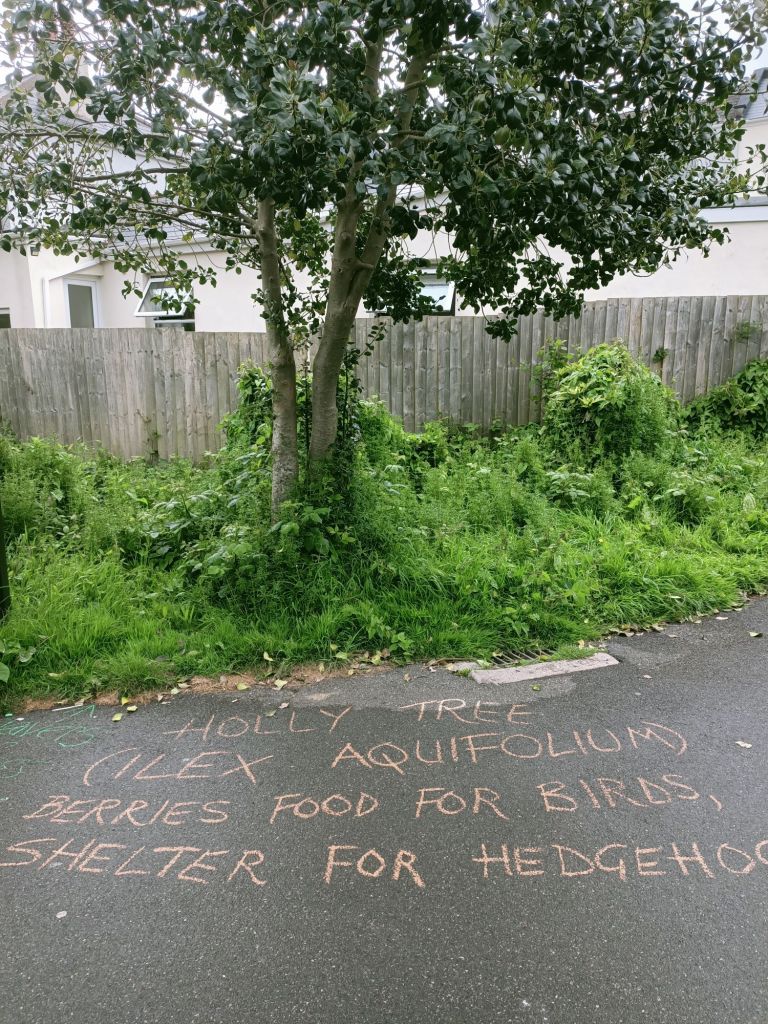 HOLLY TREE
(ILEX AQUIFOLIUM)
BERRIES FOOD FOR BIRDS,
SHELTER FOR HEDGEHOG